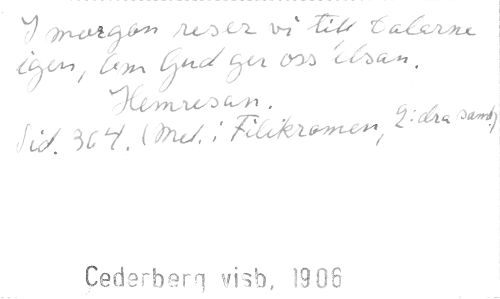 I morgon reser vi till talarne
igen, om Gud ger oss helsan.
Hemresan.
Sid. 364. (Med. i Filikromen, 2:dra saml.)
Cederberg visb, 1906